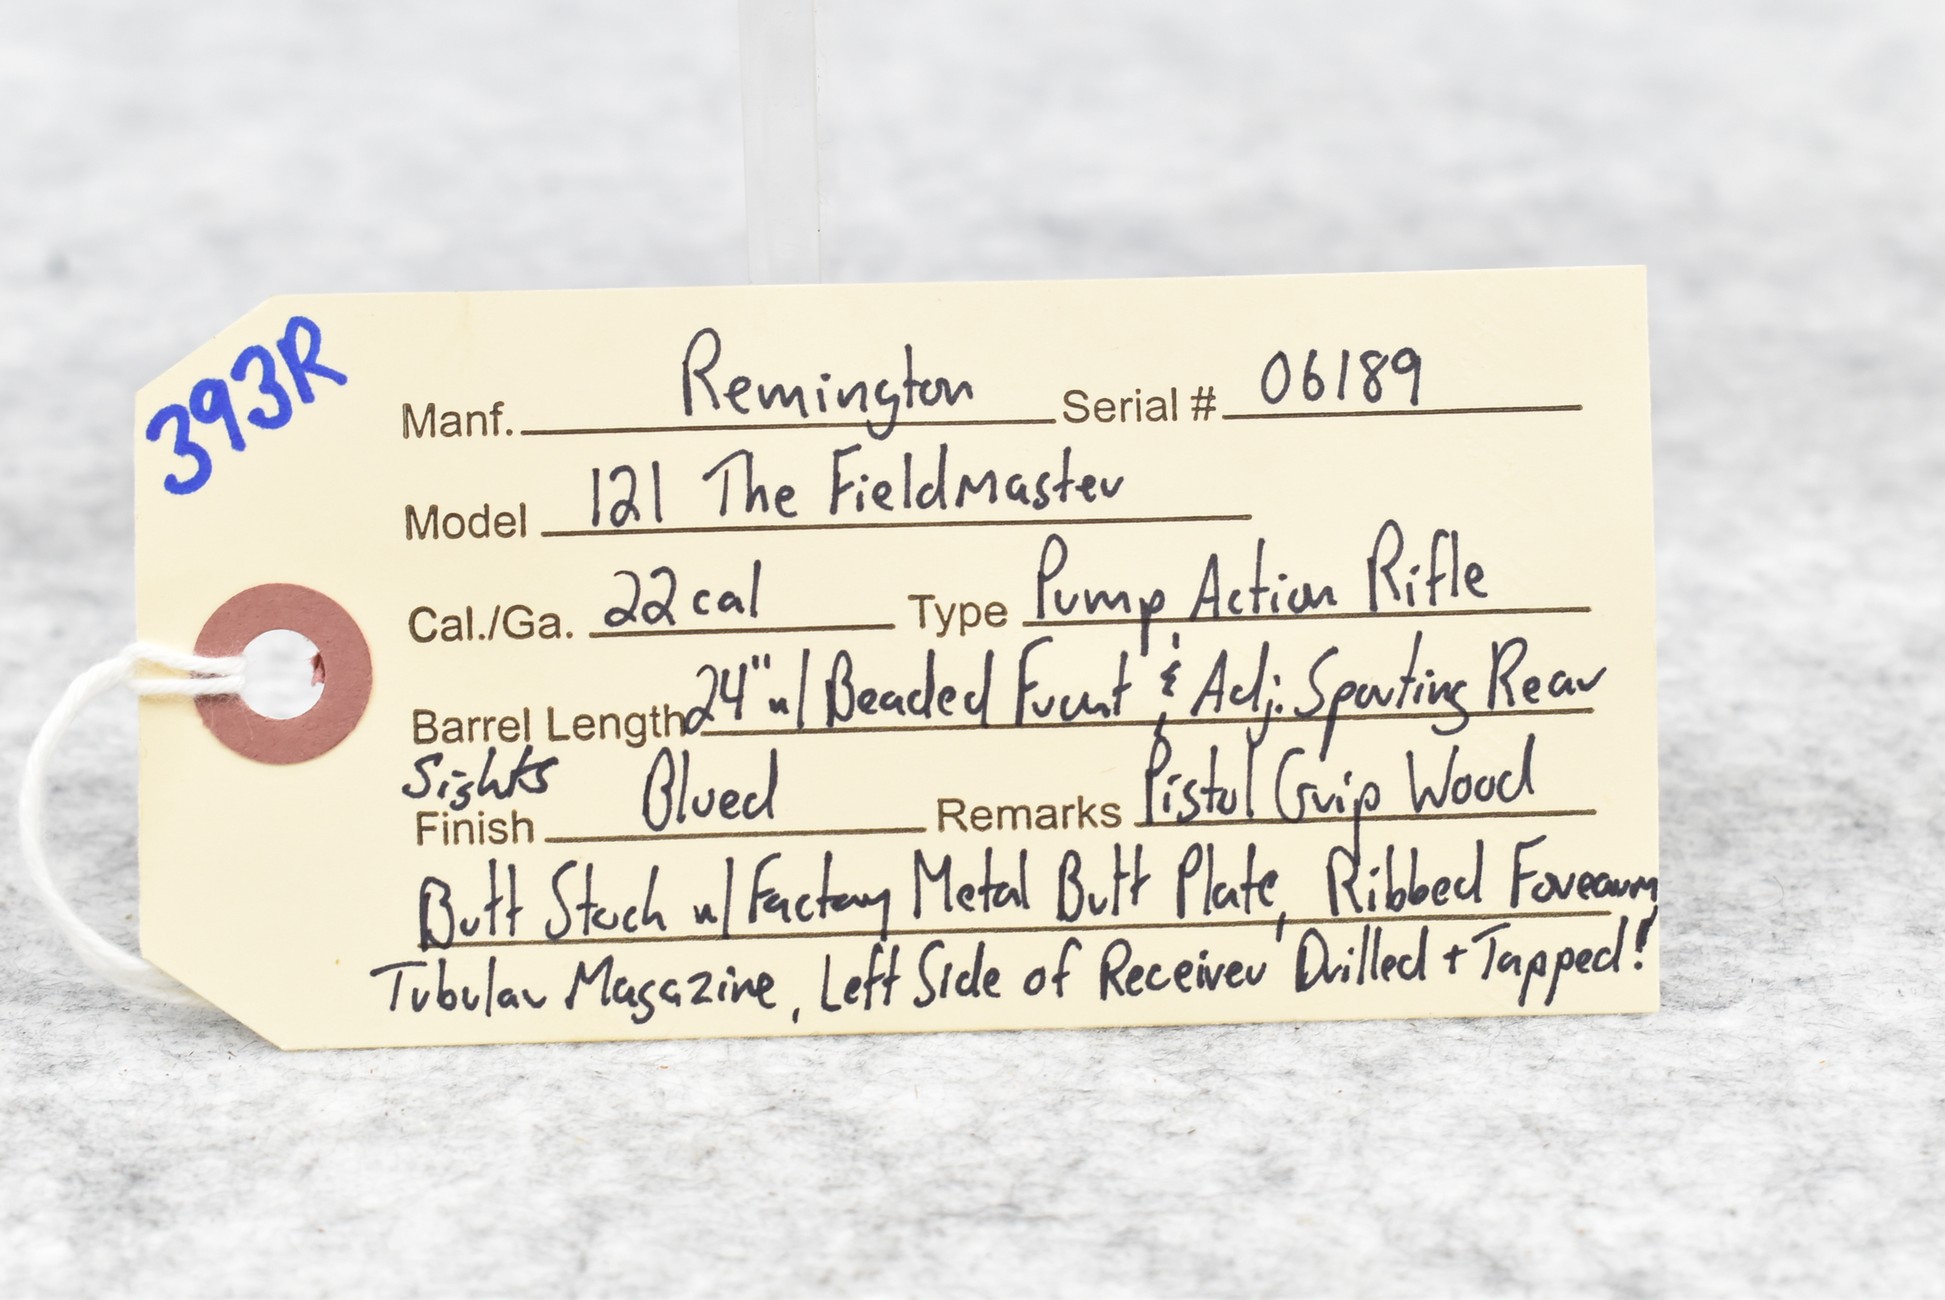 393R
Manf. Remington Serial # 06189
Model 121 The Fieldmaster
Cal./Ga. 22 cal Type Pump Action Rifle
Barrel Length 24" w/ Beaded Front & Adj. Sporting Rear
Sights
Finish Blued Remarks Pistol Grip Wood
Butt Stock w/ Factory Metal Butt Plate, Ribbed Forearm,
Tubular Magazine, Left Side of Receiver Drilled + Tapped!